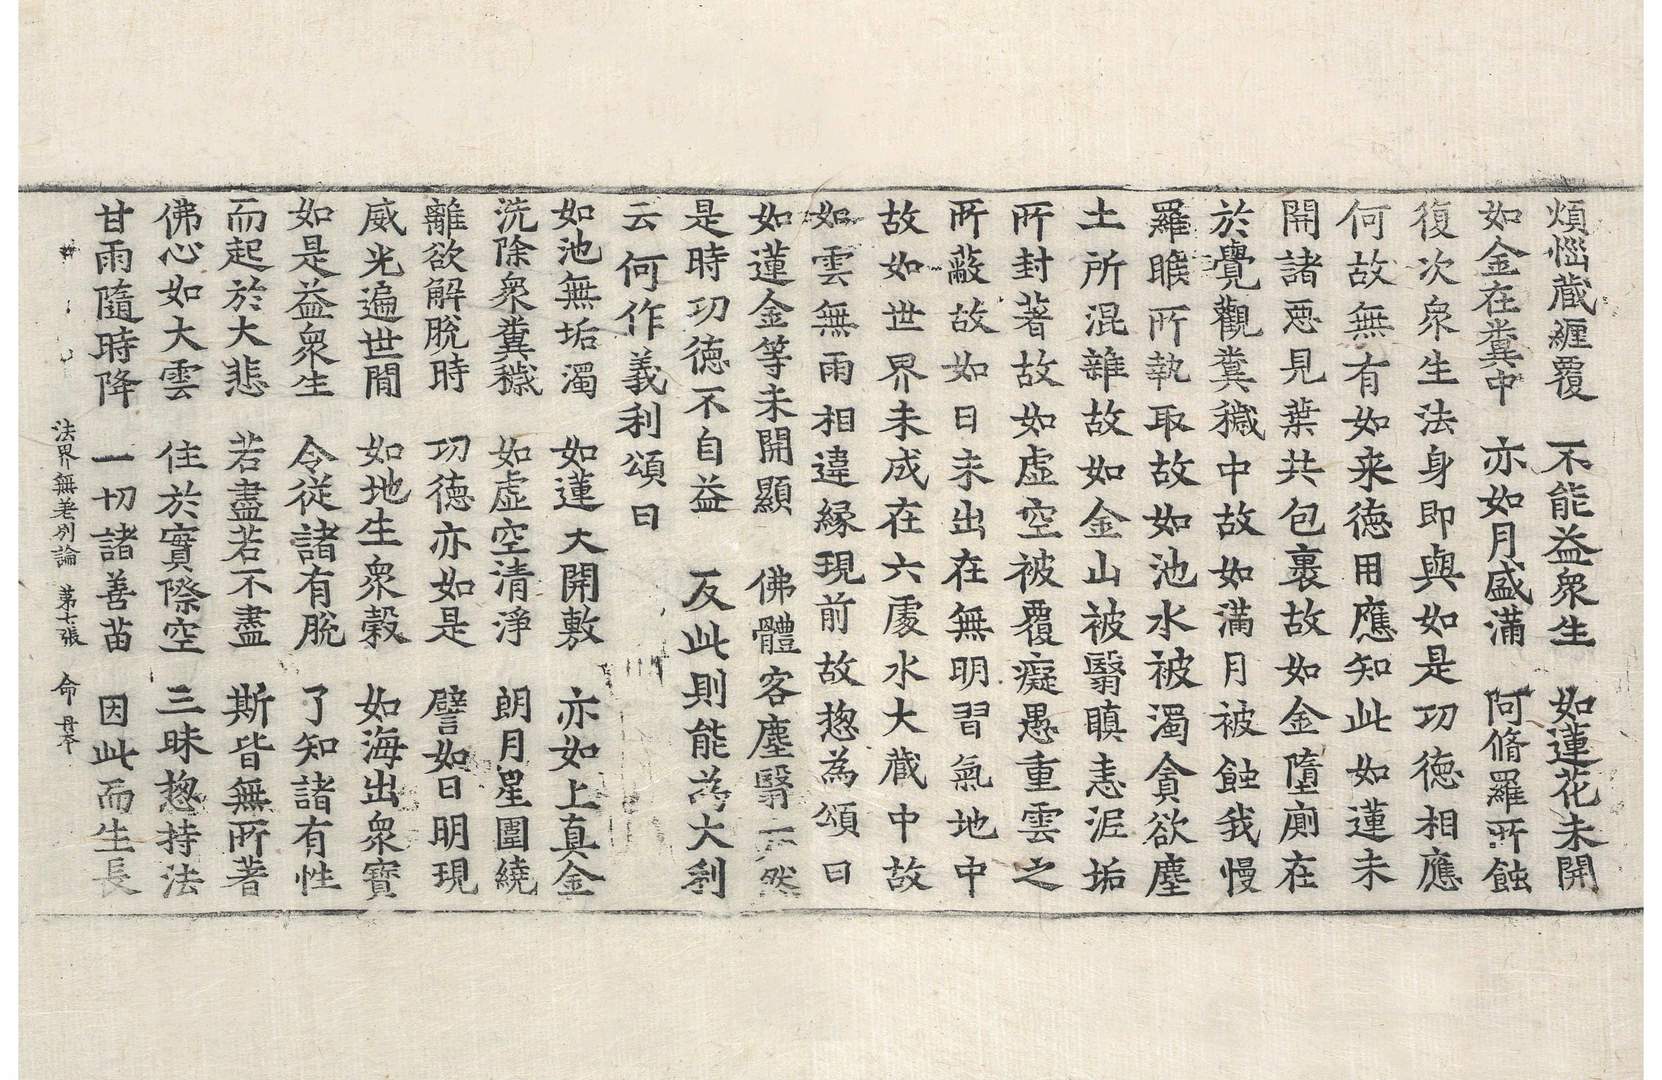 煩惱藏纒覆 不能益衆生 如蓮花未開
如金在糞中 亦如月盛滿 阿脩羅所蝕
復次衆生法身即與如是功德相應
何故無有如来德用應知此如蓮未
開諸惡見葉共包裹故如金墮廁在
於覺觀糞穢中故如滿月被蝕我慢
羅睺所執取故如池水被濁貪欲塵
土所混雜故如金山被翳瞋恚泥垢
所封著故如虛空被覆癡愚重雲之
所蔽故如日未出在無明習氣地中
故如世界未成在六處水大藏中故
如雲無雨相違緣現前故揔為頌曰
如蓮金等未開顯 佛體客塵翳亦然
是時功德不自益 反此則能為大利
云何作義利頌曰
如池無垢濁 如蓮大開敷 亦如上真金
洗除衆糞穢 如虛空清淨 朗月星圍繞
離欲解脫時 功德亦如是 譬如日明現
威光遍世閒 如地生衆穀 如海出衆寶
如是益衆生 令從諸有脫 了知諸有性
而起於大悲 若盡若不盡 斯皆無所著
佛心如大雲 住於實際空 三昧揔持法
甘雨隨時降 一切諸善苗 因此而生長
法界無差別論 第七張 命